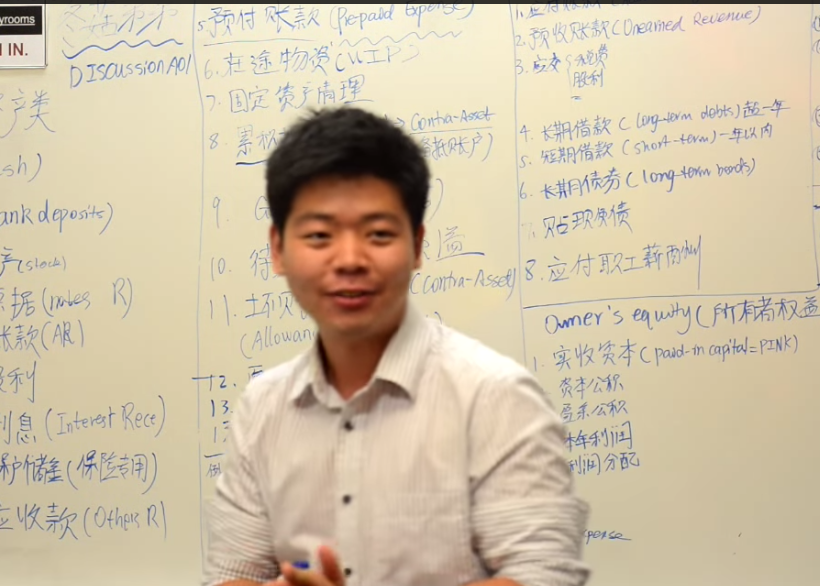 yrooms
IN.
DISCUSSION A01
产类
sh)
ank deposits)
产(stock)
票据(notes R)
帐款(AR)
股利
利息(Interest Rece)
保户储金(保险专用)
应收款(Other R)
5. 预付账款(Prepaid Expense)
6. 在途物资(WIP)
7. 固定资产清理
8. 累积
Contra-Asset
抵账户)
9.
10. 待
益
(Contra-Asset)
11. 坏
(Allowan
12.
13.
2. 预收账款(Unearned Revenue)
3. 应交
股利
4. 长期借款(long-term debts)超一年
5. 短期借款(short-term)一年以内
6. 长期债券(long-term bonds)
7. 贴现负债
8. 应付职工薪酬
Owner's equity(所有者权益
1. 实收资本(paid-in capital=PINK)
资本公积
盈余公积
本年利润
利润分配
pense